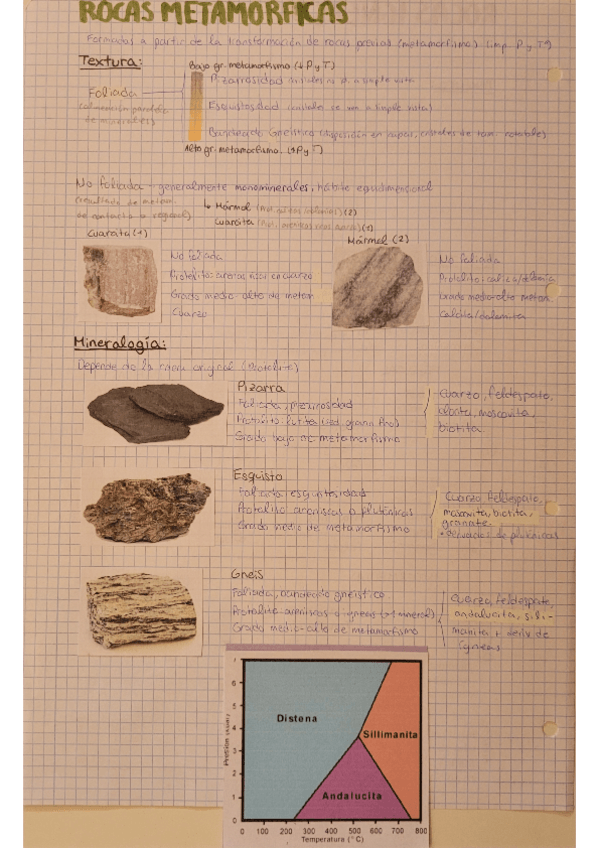 ROCAS METAMÓRFICAS
Formadas a partir de la transformación de rocas previas (metamorfismo) (imp. P y Tª)
Textura:
Bajo gr. metamorfismo (↓P y T)
Pizarrosidad cristales no a simple vista
Foliada
(alineación paralela
de minerales)
Esquistosidad (cristales se ven a simple vista)
Bandeado Gneísico (disposición en capas, cristales de tam. notable)
Alto gr. metamorfismo. (↑P y T)
No foliada - generalmente monominerales, hábito equidimensional
(resultado de metam.
de contacto o regional)
↳ Mármol (2)
Cuarcita (1)
Cuarcita (1)
No foliada
Protolito: arenas ricas en cuarzo
Grado medio-alto de metam.
Cuarzo
Mármol (2)
No foliada
Protolito: caliza/dolomía
Grado medio-alto metam.
Calcita/dolomita
Mineralogía:
Depende de la roca original (Protolito)
Pizarra
Foliada, pizarrosidad
Protolito: lutita (sed. grano fino)
Grado bajo de metamorfismo
Cuarzo, feldespato,
clorita, moscovita,
biotita
Esquisto
Foliada, esquistosidad
Protolito areniscas o plutónicas
Grado medio de metamorfismo
Cuarzo, feldespato,
moscovita, biotita,
granate.
• derivados de plutónicas
Gneis
Foliada, bandeado gneísico
Protolito areniscas o ígneas (>% mineral)
Grado medio-alto de metamorfismo
Cuarzo, feldespato,
andalucita, sili-
manita + deriv. de
ígneas
Distena
Sillimanita
Andalucita
Presión (Kbar)
7
6
5
4
3
2
1
0
0 100 200 300 400 500 600 700 800
Temperatura (°C)